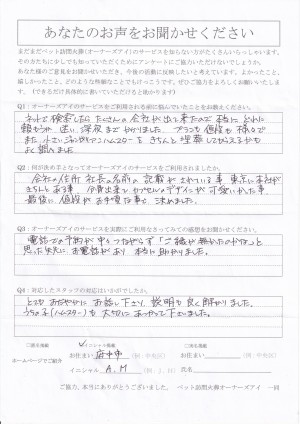 あなたのお声をお聞かせください
まだまだペット訪問火葬(オーナーズアイ)のサービスを知らない方がたくさんいらっしゃいます。
そのお方たちに少しでも知っていただくためにアンケートにご協力いただけないでしょうか。
あなた様のご意見をお聞かせいただき、今後の活動に反映したいと考えています。よかったこと、
嬉しかったこと、どのような些細なことでもけっこうです。ぜひ、ご協力をよろしくお願いいたします。
(できるだけ具体的に書いていただけると助かります)
Q1:オーナーズアイのサービスをご利用される前に悩んでいたことをお教えください。
ネットで検索したら たくさんの会社が出て来たので 本当に どれに
頼もうか 迷い、深夜までかかりました。プランも値段も様々で
また、小さいジャンガリアンハムスターを きちんと埋葬してもらえるかも
よく悩みました
Q2:何が決め手となってオーナーズアイのサービスをご利用されましたか。
会社の住所 社長の名前の 記載が されている事 東京に本社が
きちんと ある事
最後に 値段が お手頃な事で 決めました。
Q3:オーナーズアイのサービスを実際にご利用なさってみての感想をお聞かせください。
電話での予約が 中々 つながらず 「ご縁が無かったのかな」と
思った矢先に お電話があり 本当に助かりました。
Q4:対応したスタッフの対応はいかがでしたか。
とても おだやかに お話し下さり、説明も 良く解りました。
うちの子(ハムスター)も 大切に あつかって下さいました。
ホームページでご紹介
イニシャル掲載
お住まい 府中市 (例:中央区)
イニシャル A.M (例:J.H)
お住まい (例:中央区)
氏名
ご協力、本当にありがとうございました。 ペット訪問火葬オーナーズアイ 一同